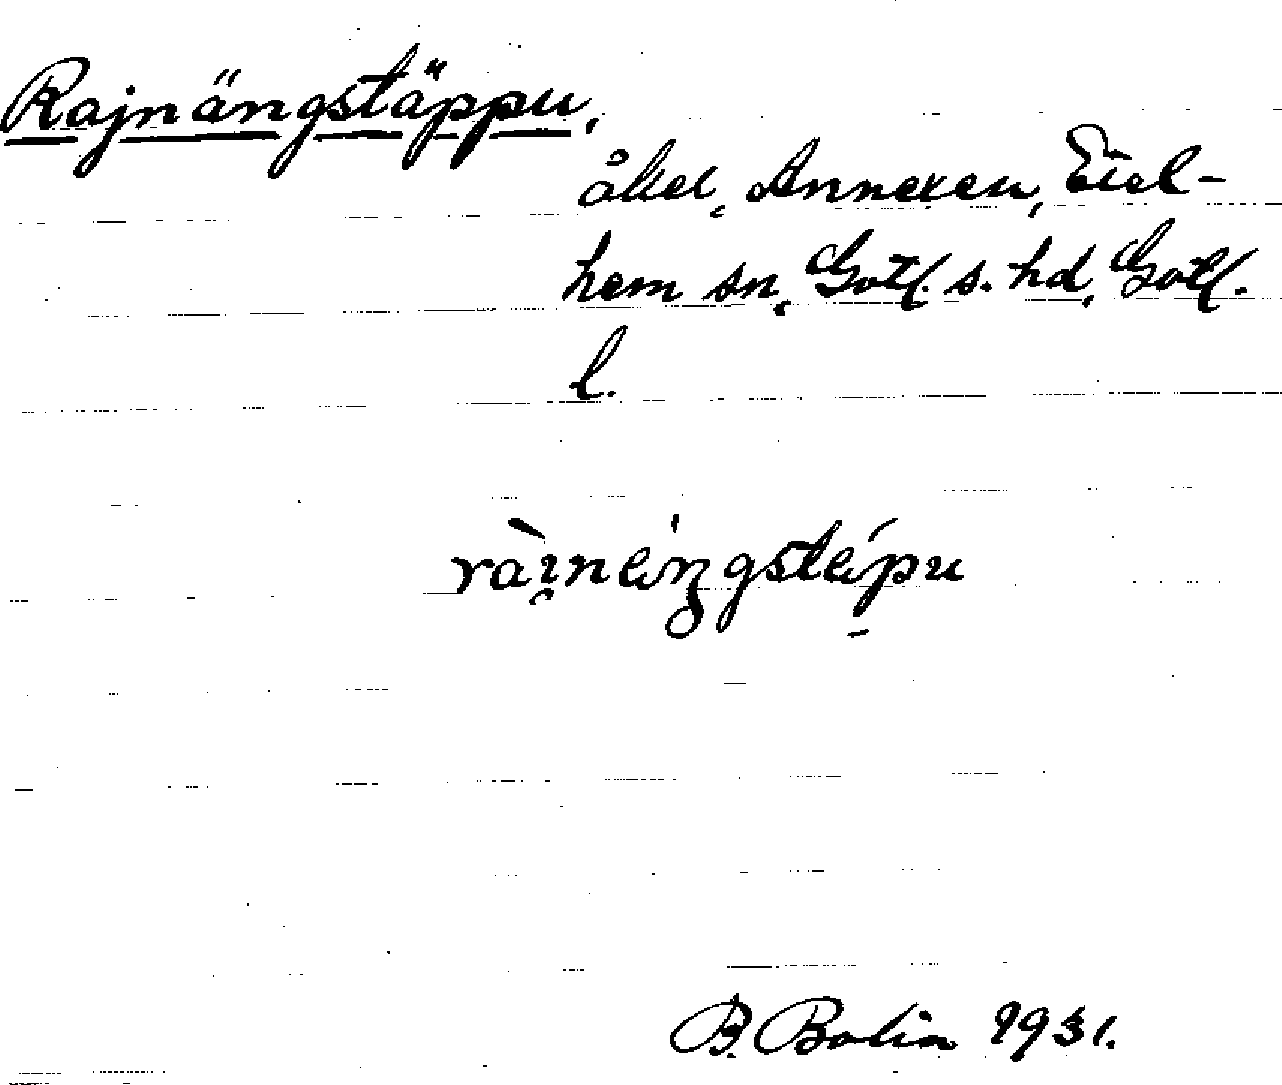 Rajnängstäppu,
åker, Annexen, Etel-
hem sn, Gotl. s. hd, Gotl.
l.
rài̯nǽŋgstǽpu
B. Bolin 1931.